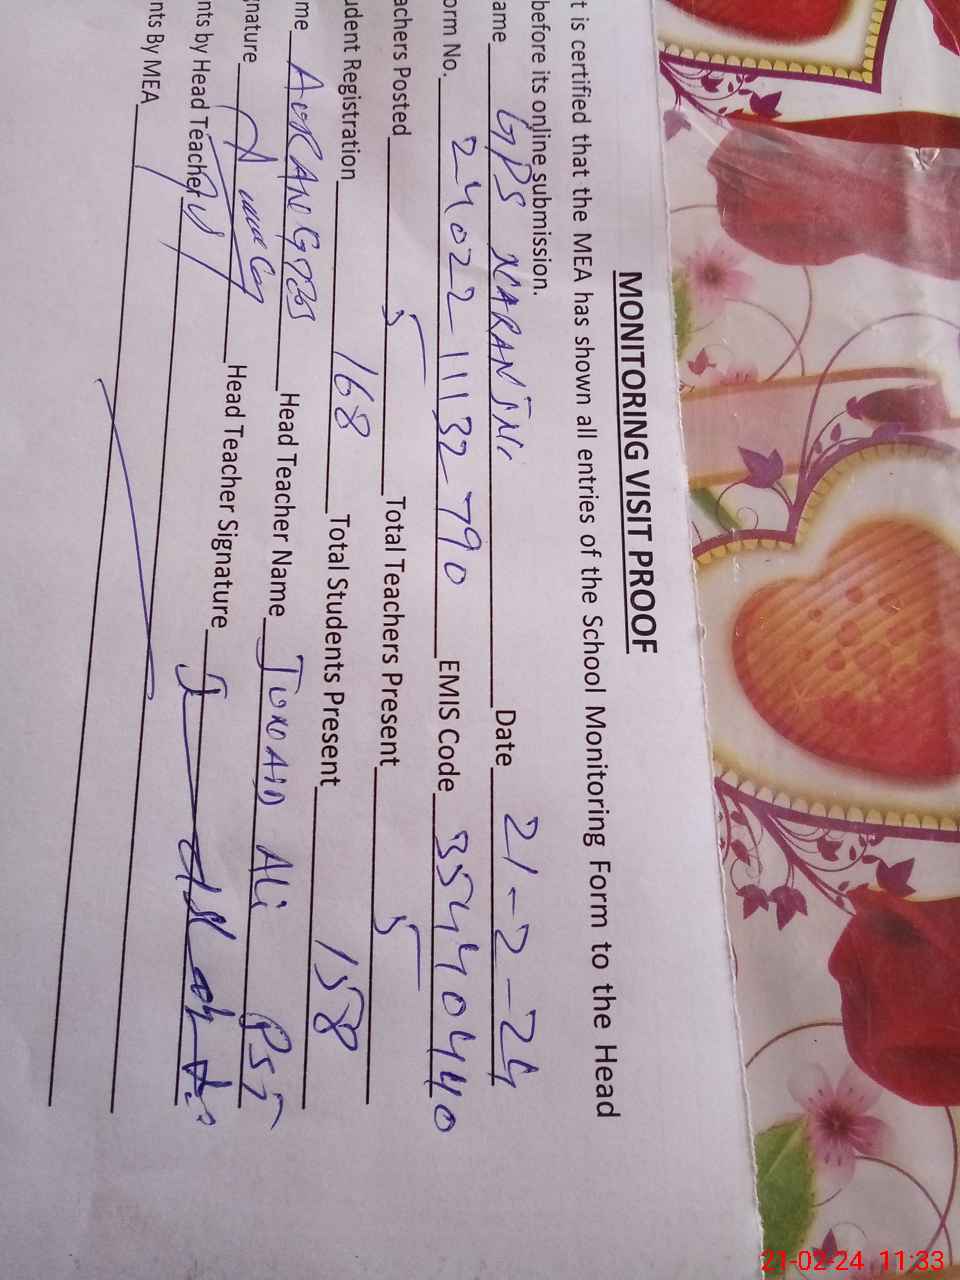 MONITORING VISIT PROOF
t is certified that the MEA has shown all entries of the School Monitoring Form to the Head
before its online submission.
ame GPS NARANJNI Date 21-2-24
orm No. 24022-11132790 EMIS Code 35440440
achers Posted 5 Total Teachers Present 5
udent Registration 168 Total Students Present 158
me AURANGZEB Head Teacher Name JUNAID ALi PST
gnature Head Teacher Signature
nts by Head Teacher
nts By MEA
21-02-24 11:33